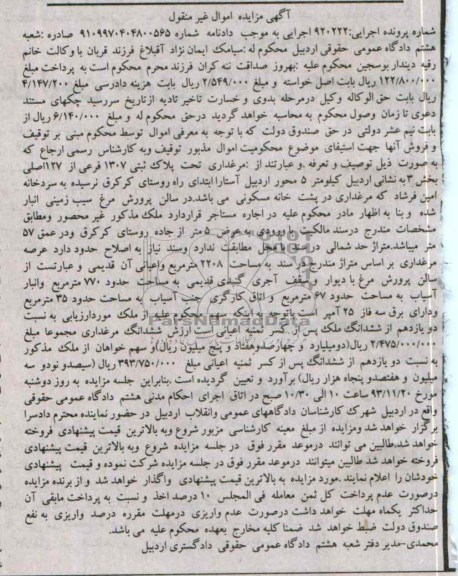 آگهی مزایده اموال غیر منقول
شماره پرونده اجرایی:۹۲۰۲۲۲ اجرایی به موجب دادنامه شماره ۹۱۰۹۹۷۰۴۰۴۸۰۰۵۶۵ صادره :شعبه
هشتم دادگاه عمومی حقوقی اردبیل محکوم له :سیامک ایمان نژاد آقبلاغ فرزند قربان با وکالت خانم
رقیه دیندار بوسجین محکوم علیه :بهروز صداقت ننه کران فرزند محرم محکوم است به پرداخت مبلغ
۱۲۲/۸۰۰/۰۰۰ ریال بابت اصل خواسته و مبلغ ۲/۵۴۹/۰۰۰ ریال بابت هزینه دادرسی مبلغ ۴/۱۴۷/۲۰۰
ریال بابت حق الوکاله وکیل درمرحله بدوی و خسارت تاخیر تادیه ازتاریخ سررسید چکهای مستند
دعوی تا زمان وصول محکوم به محاسبه خواهد گردید درحق محکوم له و مبلغ ۶/۱۴۰/۰۰۰ ریال از
بابت نیم عشر دولتی در حق صندوق دولت که با توجه به معرفی اموال توسط محکوم مبنی بر توقیف
و فروش آنها جهت استیفای موضوع محکومیت اموال مذبور توقیف وبه کارشناس رسمی ارجاع که
به صورت ذیل توصیف و تعرفه .و عبارتند از :مرغداری تحت پلاک ثبتی ۱۳۰۷ فرعی از ۱۲۷اصلی
بخش ۳ به نشانی اردبیل کیلومتر ۵ محور اردبیل آستارا ابتدای راه روستای کرکرق نرسیده به سردخانه
امین فرشاد که مرغداری در پشت خانه مسکونی می باشد.در سالن پرورش مرغ سیب زمینی انبار
شده و بنا به اظهار مادر محکوم علیه در اجاره مستاجر قراردارد ملک مذکور غیر محصور ومطابق
مشخصات مندرج درسند مالکیت با ورودی به عرض ۵ متر از جاده روستای کرکرق ودر عمق ۵۷
متر میباشد.متراژ حد شمالی در سند با محل مطابقت ندارد وسند نیاز به اصلاح حدود دارد عرصه
مرغداری بر اساس متراژ مندرج در سند به مساحت ۲۲۰۸ مترمربع واعیانی آن قدیمی و عبارتست از
سالن پرورش مرغ با دیوار و سقف آجری گنبدی قدیمی به مساحت حدود ۷۷۰ مترمربع وانبار
آسیاب به مساحت حدود ۶۷ مترمربع و اتاق کارگری جنب آسیاب به مساحت حدود ۳۵ مترمربع
ودارای برق سه فاز ۲۵ آمپر است باتوجه به اینکه سهم محکوم علیه از ملک موردارزیابی به نسبت
دو یازدهم از ششدانگ ملک پس از کسر ثمنیه اعیانی است ارزش ششدانگ مرغداری مجموعا مبلغ
۲/۴۷۵/۰۰۰/۰۰۰ ریال(دومیلیارد و چهارصدوهفتاد و پنج میلیون ریال)و سهم خواهان از ملک مذکور
به نسبت دو یازدهم از ششدانگ پس از کسر ثمنیه اعیانی مبلغ ۳۹۳/۷۵۰/۰۰۰ ریال (سیصدو نودو سه
میلیون و هفتصدو پنجاه هزار ریال) برآورد و تعیین گردیده است.بنابراین جلسه مزایده به روز دوشنبه
مورخ ۹۳/۱۱/۲۰ ساعت ۱۰ الی ۱۰/۳۰ صبح در اتاق اجرای احکام مدنی هشتم دادگاه عمومی حقوقی
واقع در اردبیل شهرک کارشناسان دادگاههای عمومی وانقلاب اردبیل در حضور نماینده محترم دادسرا
برگزار خواهد شد ومزایده از مبلغ معینه کارشناسی مزبور شروع وبه بالاترین قیمت پیشنهادی فروخته
خواهد شد.طالبین می توانند درموعد مقرر فوق در جلسه مزایده شروع وبه بالاترین قیمت پیشنهادی
فروخته خواهد شد طالبین میتوانند درموعد مقرر فوق در جلسه مزایده شرکت نموده و قیمت پیشنهادی
خودشان را اعلام نمایند .مورد مزایده به بالاترین قیمت پیشنهادی واگذار خواهد شد و از برنده مزایده
درصورت عدم پرداخت کل ثمن معامله فی المجلس ۱۰ درصد اخذ و نسبت به پرداخت مابقی آن
حداکثر یکماه مهلت خواهد داشت درصورت عدم واریزی درمهلت مقرره درصد واریزی به نفع
صندوق دولت ضبط خواهد شد ضمنا کلیه مخارج بعهده محکوم علیه می باشد.
محمدی-مدیر دفتر شعبه هشتم دادگاه عمومی حقوقی دادگستری اردبیل